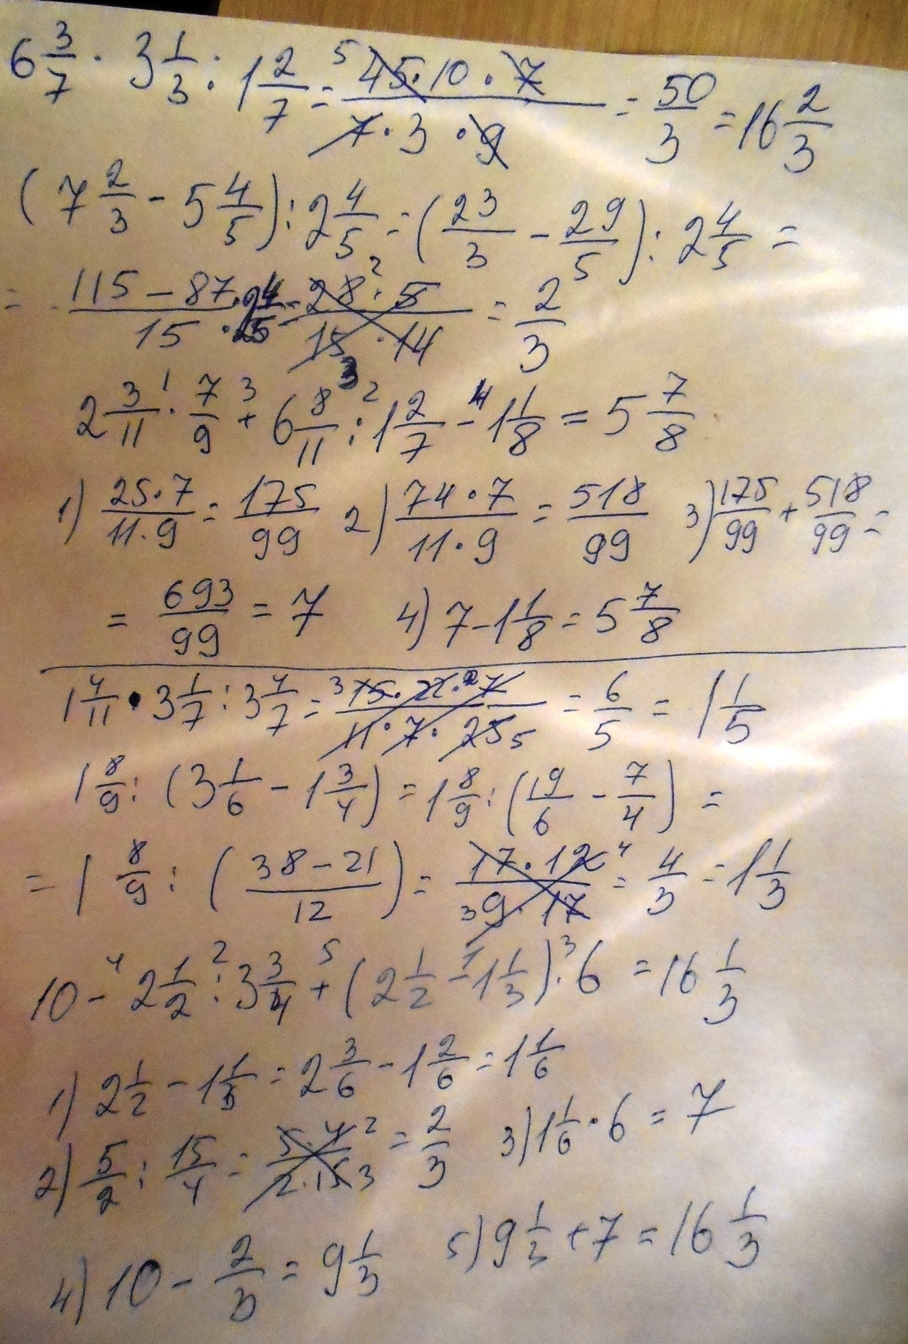 6 3/7 · 3 1/3 : 1 2/7 = 5 45·10·7 / 7·3·9 = 50/3 = 16 2/3
(7 2/3 - 5 4/5) : 2 4/5 = (23/3 - 29/5) : 2 4/5 =
= 115-87 / 15 = 28·5 2 / 15·14 3 = 2/3
2 3/11 ·1 7/9 +3 6 8/11 :2 1 2/7 -4 1 1/8 = 5 7/8
1) 25·7 / 11·9 = 175/99 2) 74·7 / 11·9 = 518/99 3) 175/99 + 518/99 =
= 693/99 = 7 4) 7-1 1/8 = 5 7/8
1 4/11 · 3 1/7 : 3 4/7 = 3 15·22·2 7 / 11·7·25 5 = 6/5 = 1 1/5
1 8/9 : (3 1/6 - 1 3/4) = 1 8/9 : (19/6 - 7/4) =
= 1 8/9 : (38-21 / 12) = 17·12 4 / 3 9·17 = 4/3 = 1 1/3
10 -4 2 1/2 :2 3 3/4 +5 (2 1/2 -1 1 1/3) ·3 6 = 16 1/3
1) 2 1/2 - 1 1/3 = 2 3/6 - 1 2/6 = 1 1/6
2) 5/2 : 15/4 = 5·4 2 / 2·15 3 = 2/3 3) 1 1/6 · 6 = 7
4) 10 - 2/3 = 9 1/3 5) 9 1/3 + 7 = 16 1/3